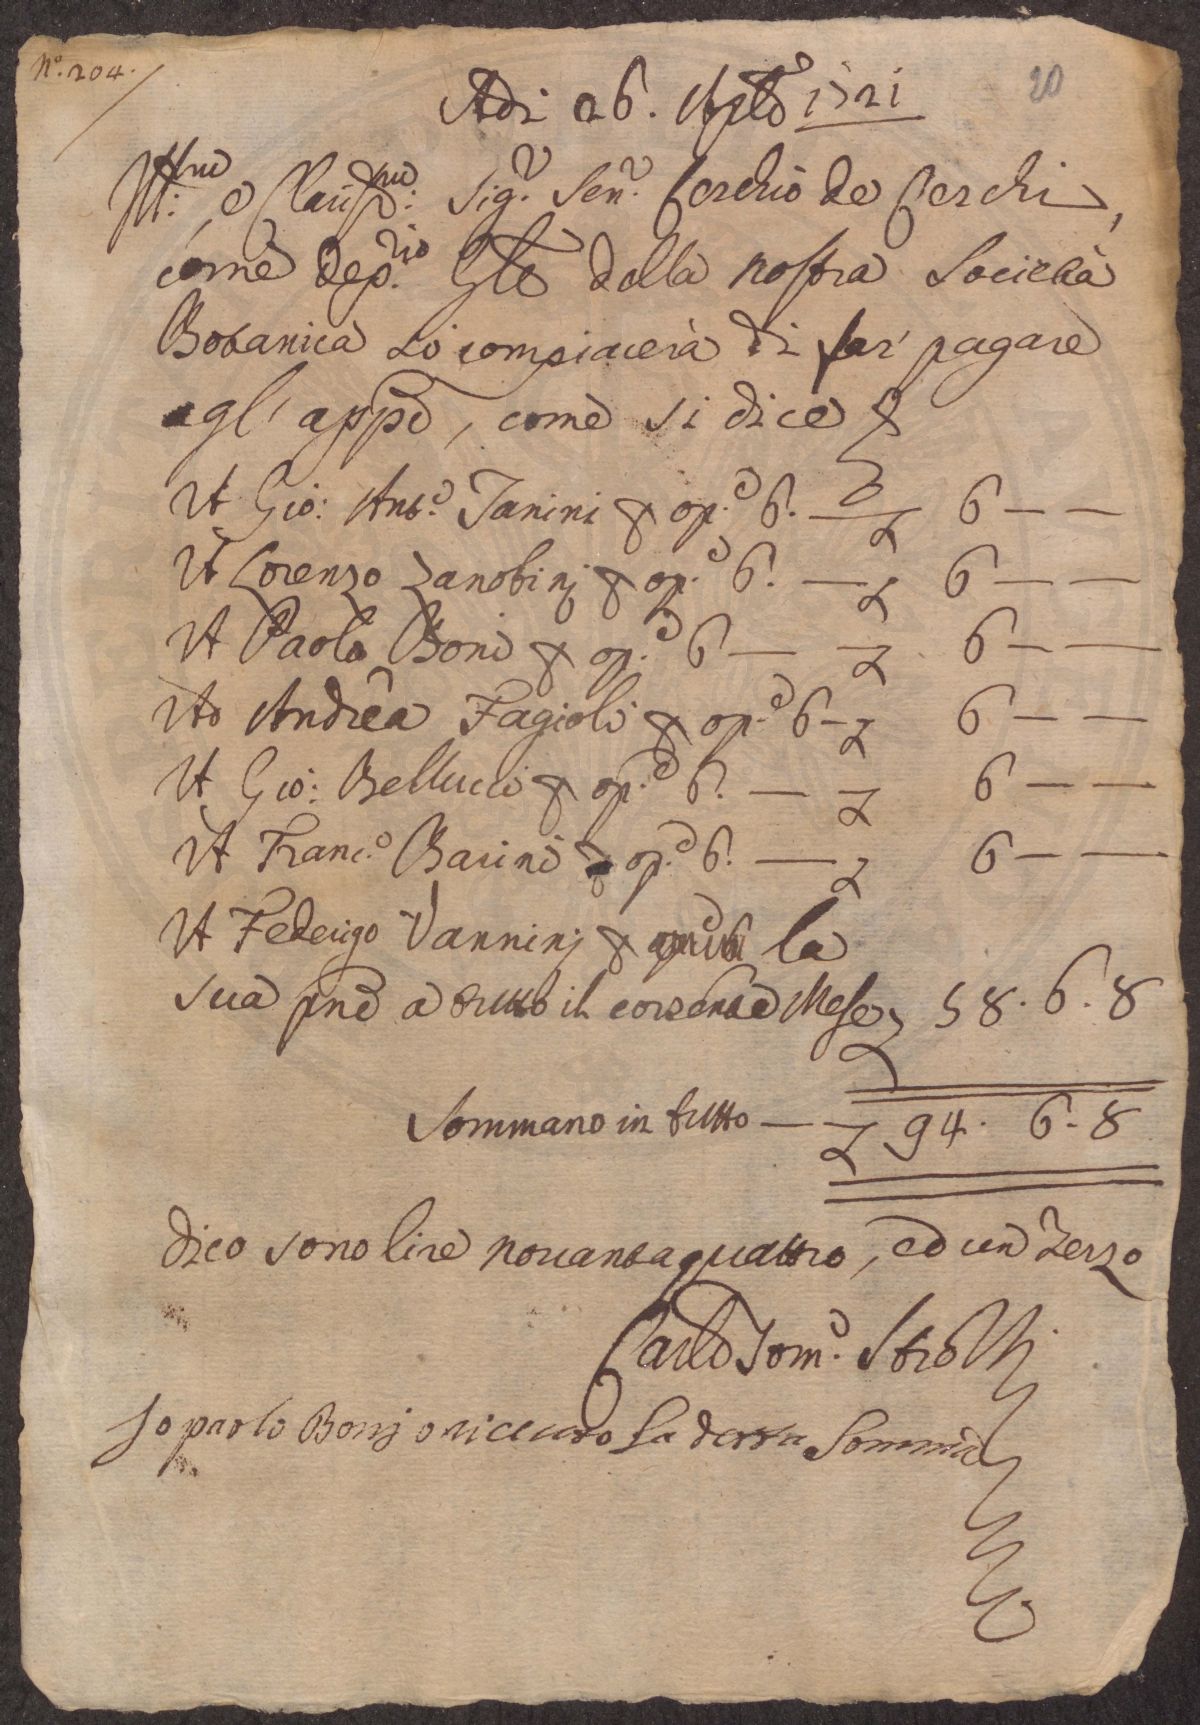 N.º 204.
20
Adi 26. Aple 1721
Ill:mo e Clariss:mo Sig.r Sen.r Cerchio de Cerchi,
come Dep.rio Gle della nostra Società
Botanica si compiacerà di far pagare
agl' appd, come si dice
A Gio: Ant.o Janini p op.e 6. — £ 6 — —
A Lorenzo Zanobinj p op.e 6. — £ 6 — —
A Paolo Boni p op.e 6 — £ 6 — —
Ad Andrea Fagioli p op.e 6 — £ 6 — —
A Gio: Bellucci p op.e 6. — £ 6 — —
A Franc.o Barini p op.e 6. — £ 6 — —
A Federigo Vanninj p la
sua pne a tutto il corrente Mese £ 58. 6. 8
Sommano in tutto — £ 94. 6. 8
dico sono lire novantaquattro, ed un terzo
Carlo Tom.o Strozzi
Io paolo Bonj o riceuto la detta Somma